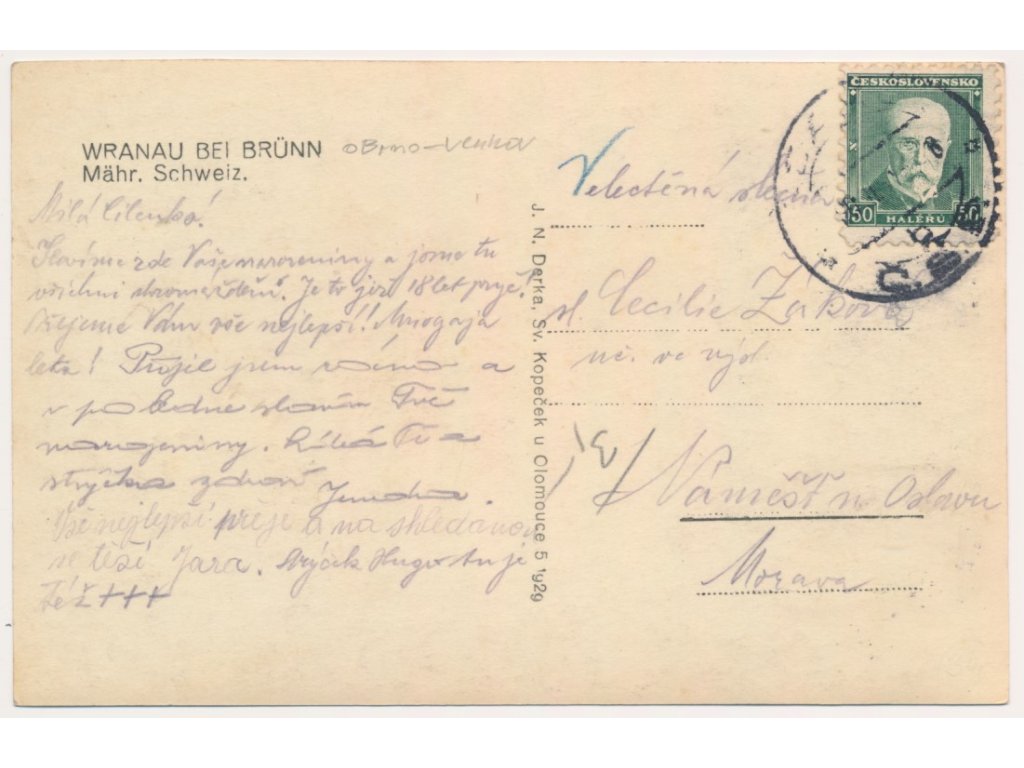 WRANAU BEI BRÜNN oBrno-venkov
Mähr. Schweiz.
Milá Cilenko!
Slavíme zde Vaše narozeniny a jsme tu
všichni shromážděni. Je to již 18 let pryč!
Přejeme Vám vše nejlepší! Mnogaja
leta! Přijel jsem ráno a
v poledne slavím Tvé
narozeniny. Líbá Tě a
strýčka zdraví Jenda.
Vše nejlepší přeje a na shledanou
se těší Jara. Strýček Hugo Tu je
též +++
J. N. Derka, Sv. Kopeček u Olomouce 5 1929
ČESKOSLOVENSKO
50 HALÉŘŮ 50
Velectěná slečna
sl. Cecilie Žáková
uč. ve výsl.
Náměšť n. Oslavou
Morava